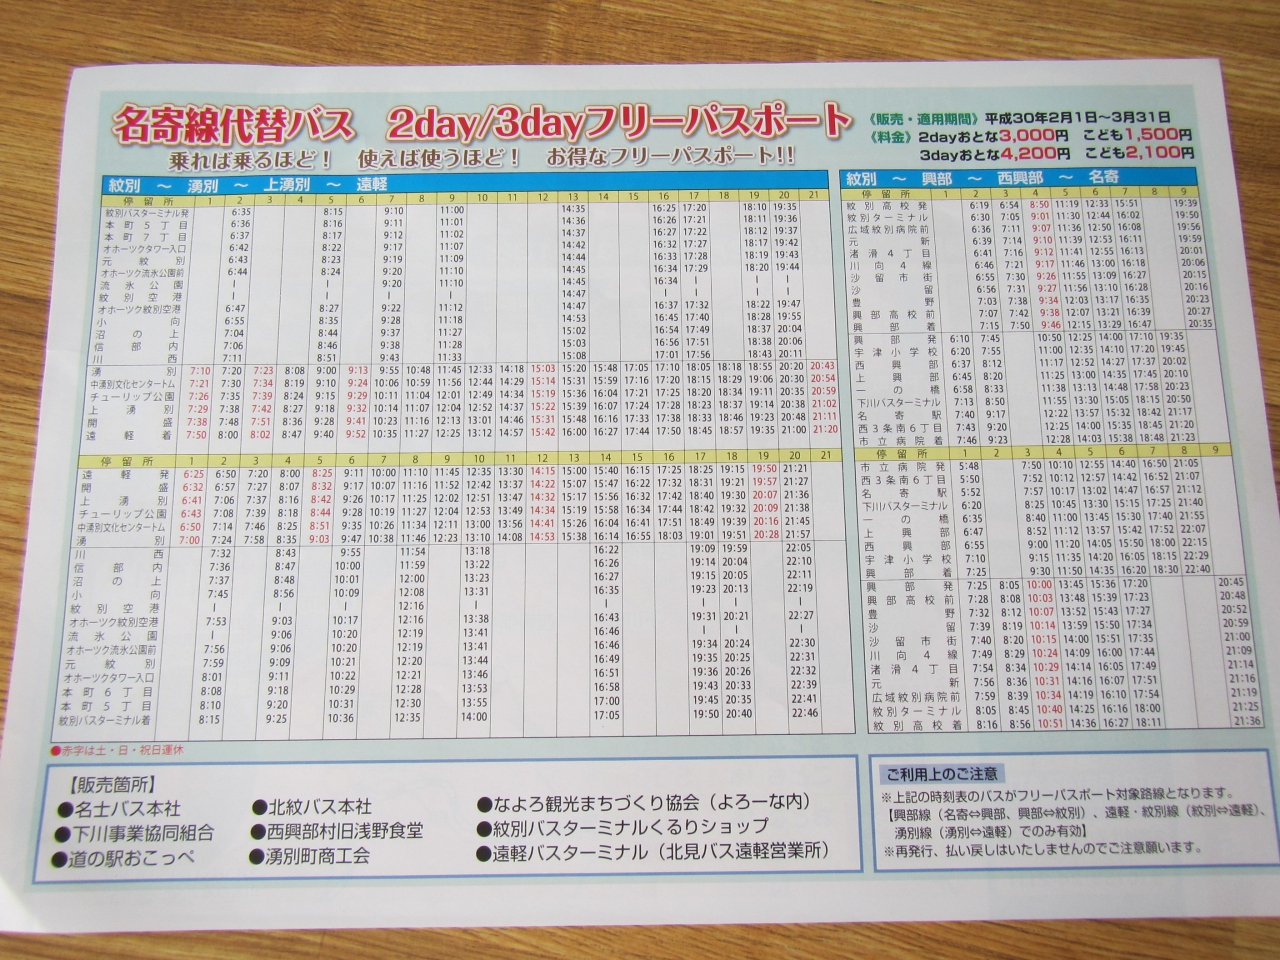 名寄線代替バス 2day/3dayフリーパスポート
乗れば乗るほど! 使えば使うほど! お得なフリーパスポート!!
《販売・適用期間》平成30年2月1日～3月31日
《料金》2dayおとな3,000円 こども1,500円
3dayおとな4,200円 こども2,100円
紋別 ～ 湧別 ～ 上湧別 ～ 遠軽
停留所 1 2 3 4 5 6 7 8 9 10 11 12 13 14 15 16 17 18 19 20 21
紋別バスターミナル発 6:35 8:15 9:10 11:00 14:35 16:25 17:20 18:10 19:35
本町5丁目 6:36 8:16 9:11 11:01 14:36 16:26 17:21 18:11 19:36
本町7丁目 6:37 8:17 9:12 11:02 14:37 16:27 17:22 18:12 19:37
オホーツクタワー入口 6:42 8:22 9:17 11:07 14:42 16:32 17:27 18:17 19:42
元紋別 6:43 8:23 9:19 11:09 14:44 16:33 17:28 18:19 19:43
オホーツク流氷公園前 6:44 8:24 9:20 11:10 14:45 16:34 17:29 18:20 19:44
流氷公園 | | 9:20 11:10 14:45 16:34 | | |
紋別空港 | | | | 14:47 | | |
オホーツク紋別空港 6:47 8:27 9:22 11:12 14:47 16:37 17:32 18:22 19:47
小向 6:55 8:35 9:28 11:18 14:53 16:45 17:40 18:28 19:55
沼の上 7:04 8:44 9:37 11:27 15:02 16:54 17:49 18:37 20:04
信部内 7:06 8:46 9:38 11:28 15:03 16:56 17:51 18:38 20:06
川西 7:11 8:51 9:43 11:33 15:08 17:01 17:56 18:43 20:11
湧別 7:10 7:20 7:23 8:08 9:00 9:13 9:55 10:48 11:45 12:33 14:18 15:03 15:20 15:48 17:05 17:10 18:05 18:18 18:55 20:20 20:43
中湧別文化センタートム 7:21 7:30 7:34 8:19 9:10 9:24 10:06 10:59 11:56 12:44 14:29 15:14 15:31 15:59 17:16 17:20 18:15 18:29 19:06 20:30 20:54
チューリップ公園 7:26 7:35 7:39 8:24 9:15 9:29 10:11 11:04 12:01 12:49 14:34 15:19 15:36 16:04 17:21 17:25 18:20 18:34 19:11 20:35 20:59
上湧別 7:29 7:38 7:42 8:27 9:18 9:32 10:14 11:07 12:04 12:52 14:37 15:22 15:39 16:07 17:24 17:28 18:23 18:37 19:14 20:38 21:02
開盛 7:38 7:48 7:51 8:36 9:28 9:41 10:23 11:16 12:13 13:01 14:46 15:31 15:48 16:16 17:33 17:38 18:33 18:46 19:23 20:48 21:11
遠軽着 7:50 8:00 8:02 8:47 9:40 9:52 10:35 11:27 12:25 13:12 14:57 15:42 16:00 16:27 17:44 17:50 18:45 18:57 19:35 21:00 21:20
停留所 1 2 3 4 5 6 7 8 9 10 11 12 13 14 15 16 17 18 19 20 21
遠軽発 6:25 6:50 7:20 8:00 8:25 9:11 10:00 11:10 11:45 12:35 13:30 14:15 15:00 15:40 16:15 17:25 18:25 19:15 19:50 21:21
開盛 6:32 6:57 7:27 8:07 8:32 9:17 10:07 11:16 11:52 12:42 13:37 14:22 15:07 15:46 16:22 17:32 18:31 19:21 19:57 21:27
上湧別 6:41 7:06 7:37 8:16 8:42 9:26 10:17 11:25 12:02 12:51 13:47 14:32 15:17 15:56 16:32 17:42 18:40 19:30 20:07 21:36
チューリップ公園 6:43 7:08 7:39 8:18 8:44 9:28 10:19 11:27 12:04 12:53 13:49 14:34 15:19 15:58 16:34 17:44 18:42 19:32 20:09 21:38
中湧別文化センタートム 6:50 7:14 7:46 8:25 8:51 9:35 10:26 11:34 12:11 13:00 13:56 14:41 15:26 16:04 16:41 17:51 18:49 19:39 20:16 21:45
湧別 7:00 7:24 7:58 8:35 9:03 9:47 10:38 11:46 12:23 13:10 14:08 14:53 15:38 16:14 16:55 18:03 19:01 19:51 20:28 21:57
川西 7:32 8:43 9:55 11:54 13:18 16:22 19:09 19:59 22:05
信部内 7:36 8:47 10:00 11:59 13:22 16:26 19:14 20:04 22:10
沼の上 7:37 8:48 10:01 12:00 13:23 16:27 19:15 20:05 22:11
小向 7:45 8:56 10:09 12:08 13:31 16:35 19:23 20:13 22:19
紋別空港 | | | 12:16 | | | | |
オホーツク紋別空港 7:53 9:03 10:17 12:16 13:38 16:43 19:31 20:21 22:27
流氷公園 | 9:06 10:20 12:19 13:41 16:46 | | |
オホーツク流氷公園前 7:56 9:06 10:20 12:19 13:41 16:46 19:34 20:24 22:30
元紋別 7:59 9:09 10:21 12:20 13:44 16:49 19:35 20:25 22:31
オホーツクタワー入口 8:01 9:11 10:22 12:21 13:46 16:51 19:36 20:26 22:32
本町6丁目 8:08 9:18 10:29 12:28 13:53 16:58 19:43 20:33 22:39
本町5丁目 8:10 9:20 10:31 12:30 13:55 17:00 19:45 20:35 22:41
紋別バスターミナル着 8:15 9:25 10:36 12:35 14:00 17:05 19:50 20:40 22:46
●赤字は土・日・祝日運休
紋別 ～ 興部 ～ 西興部 ～ 名寄
停留所 1 2 3 4 5 6 7 8 9
紋別高校発 6:19 6:54 8:50 11:19 12:33 15:51 19:39
紋別ターミナル 6:30 7:05 9:01 11:30 12:44 16:02 19:50
広域紋別病院前 6:36 7:11 9:07 11:36 12:50 16:08 19:56
元新 6:39 7:14 9:10 11:39 12:53 16:11 19:59
渚滑4丁目 6:41 7:16 9:12 11:41 12:55 16:13 20:01
川向4線 6:46 7:21 9:17 11:46 13:00 16:18 20:06
沙留市街 6:55 7:30 9:26 11:55 13:09 16:27 20:15
沙留 6:56 7:31 9:27 11:56 13:10 16:28 20:16
豊野 7:03 7:38 9:34 12:03 13:17 16:35 20:23
興部高校前 7:07 7:42 9:38 12:07 13:21 16:39 20:27
興部着 7:15 7:50 9:46 12:15 13:29 16:47 20:35
興部発 6:10 7:45 10:50 12:25 14:00 17:10 19:35
宇津小学校 6:20 7:55 11:00 12:35 14:10 17:20 19:45
西興部 6:37 8:12 11:17 12:52 14:27 17:37 20:02
上興部 6:45 8:20 11:25 13:00 14:35 17:45 20:10
一の橋 6:58 8:33 11:38 13:13 14:48 17:58 20:23
下川バスターミナル 7:13 8:50 11:55 13:30 15:05 18:15 20:50
名寄駅 7:40 9:17 12:22 13:57 15:32 18:42 21:17
西3条南6丁目 7:43 9:20 12:25 14:00 15:35 18:45 21:20
市立病院着 7:46 9:23 12:28 14:03 15:38 18:48 21:23
停留所 1 2 3 4 5 6 7 8 9
市立病院発 5:48 7:50 10:10 12:55 14:40 16:50 21:05
西3条南6丁目 5:50 7:52 10:12 12:57 14:42 16:52 21:07
名寄駅 5:52 7:57 10:17 13:02 14:47 16:57 21:12
下川バスターミナル 6:20 8:25 10:45 13:30 15:15 17:25 21:40
一の橋 6:35 8:40 11:00 13:45 15:30 17:40 21:55
上興部 6:47 8:52 11:12 13:57 15:42 17:52 22:07
西興部 6:55 9:00 11:20 14:05 15:50 18:00 22:15
宇津小学校 7:10 9:15 11:35 14:20 16:05 18:15 22:29
興部着 7:25 9:30 11:50 14:35 16:20 18:30 22:40
興部発 7:25 8:05 10:00 13:45 15:36 17:20 20:45
興部高校前 7:28 8:08 10:03 13:48 15:39 17:23 20:48
豊野 7:32 8:12 10:07 13:52 15:43 17:27 20:52
沙留 7:39 8:19 10:14 13:59 15:50 17:34 20:59
沙留市街 7:40 8:20 10:15 14:00 15:51 17:35 21:00
川向4線 7:49 8:29 10:24 14:09 16:00 17:44 21:09
渚滑4丁目 7:54 8:34 10:29 14:14 16:05 17:49 21:14
元新 7:56 8:36 10:31 14:16 16:07 17:51 21:16
広域紋別病院前 7:59 8:39 10:34 14:19 16:10 17:54 21:19
紋別ターミナル 8:05 8:45 10:40 14:25 16:16 18:00 21:25
紋別高校着 8:16 8:56 10:51 14:36 16:27 18:11 21:36
【販売箇所】
●名士バス本社 ●北紋バス本社 ●なよろ観光まちづくり協会（よろーな内）
●下川事業協同組合 ●西興部村旧浅野食堂 ●紋別バスターミナルくるりショップ
●道の駅おこっぺ ●湧別町商工会 ●遠軽バスターミナル（北見バス遠軽営業所）
ご利用上のご注意
※上記の時刻表のバスがフリーパスポート対象路線となります。
【興部線（名寄⇔興部、興部⇔紋別）、遠軽・紋別線（紋別⇔遠軽）、
湧別線（湧別⇔遠軽）でのみ有効】
※再発行、払い戻しはいたしませんのでご注意願います。